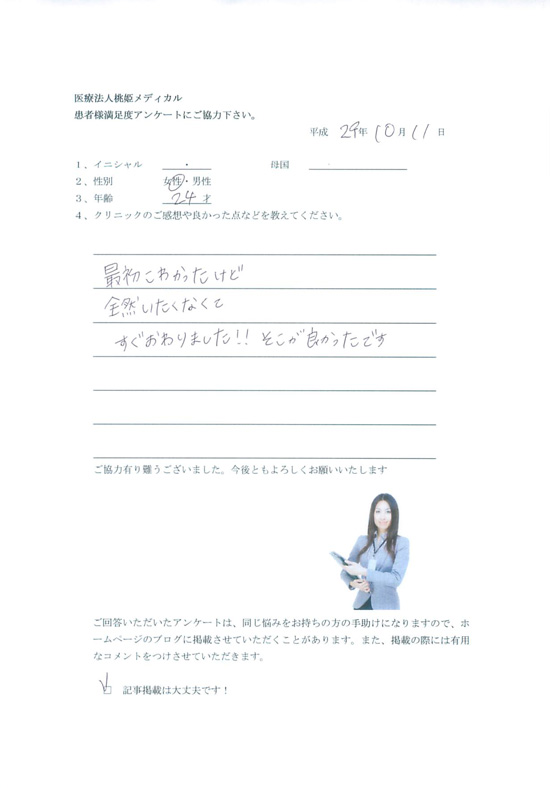 医療法人桃姫メディカル
患者様満足度アンケートにご協力下さい。
平成 29年 10月 11日
1、イニシャル ・ 母国
2、性別 女性・男性
3、年齢 24才
4、クリニックのご感想や良かった点などを教えてください。
最初こわかったけど
全然いたくなくて
すぐおわりました!! そこが良かったです
ご協力有り難うございました。今後ともよろしくお願いいたします
ご回答いただいたアンケートは、同じ悩みをお持ちの方の手助けになりますので、ホ
ームページのブログに掲載させていただくことがあります。また、掲載の際には有用
なコメントをつけさせていただきます。
記事掲載は大丈夫です!